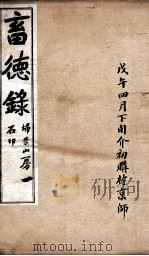 畜德錄
埽葉山房
石印
一
戊午四月下旬介初購於京師